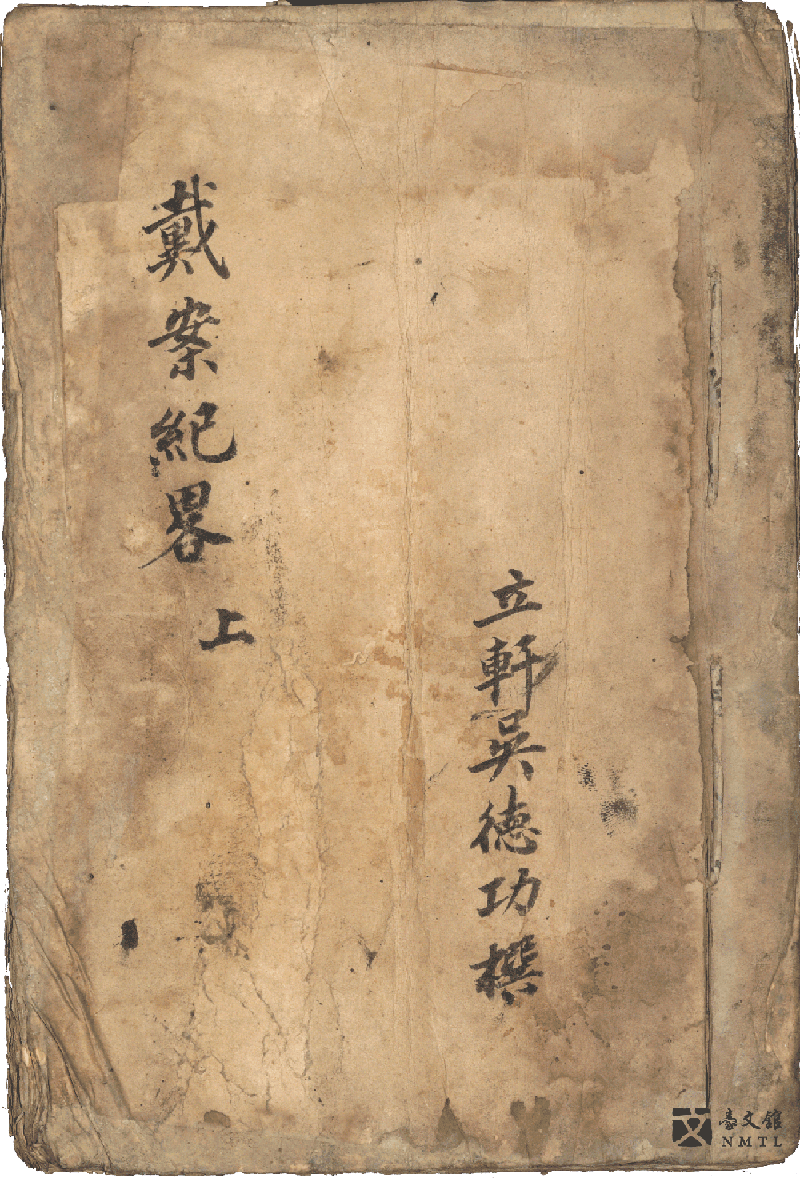 戴案紀畧 上
立軒吳德功撰
臺文館
NMTL